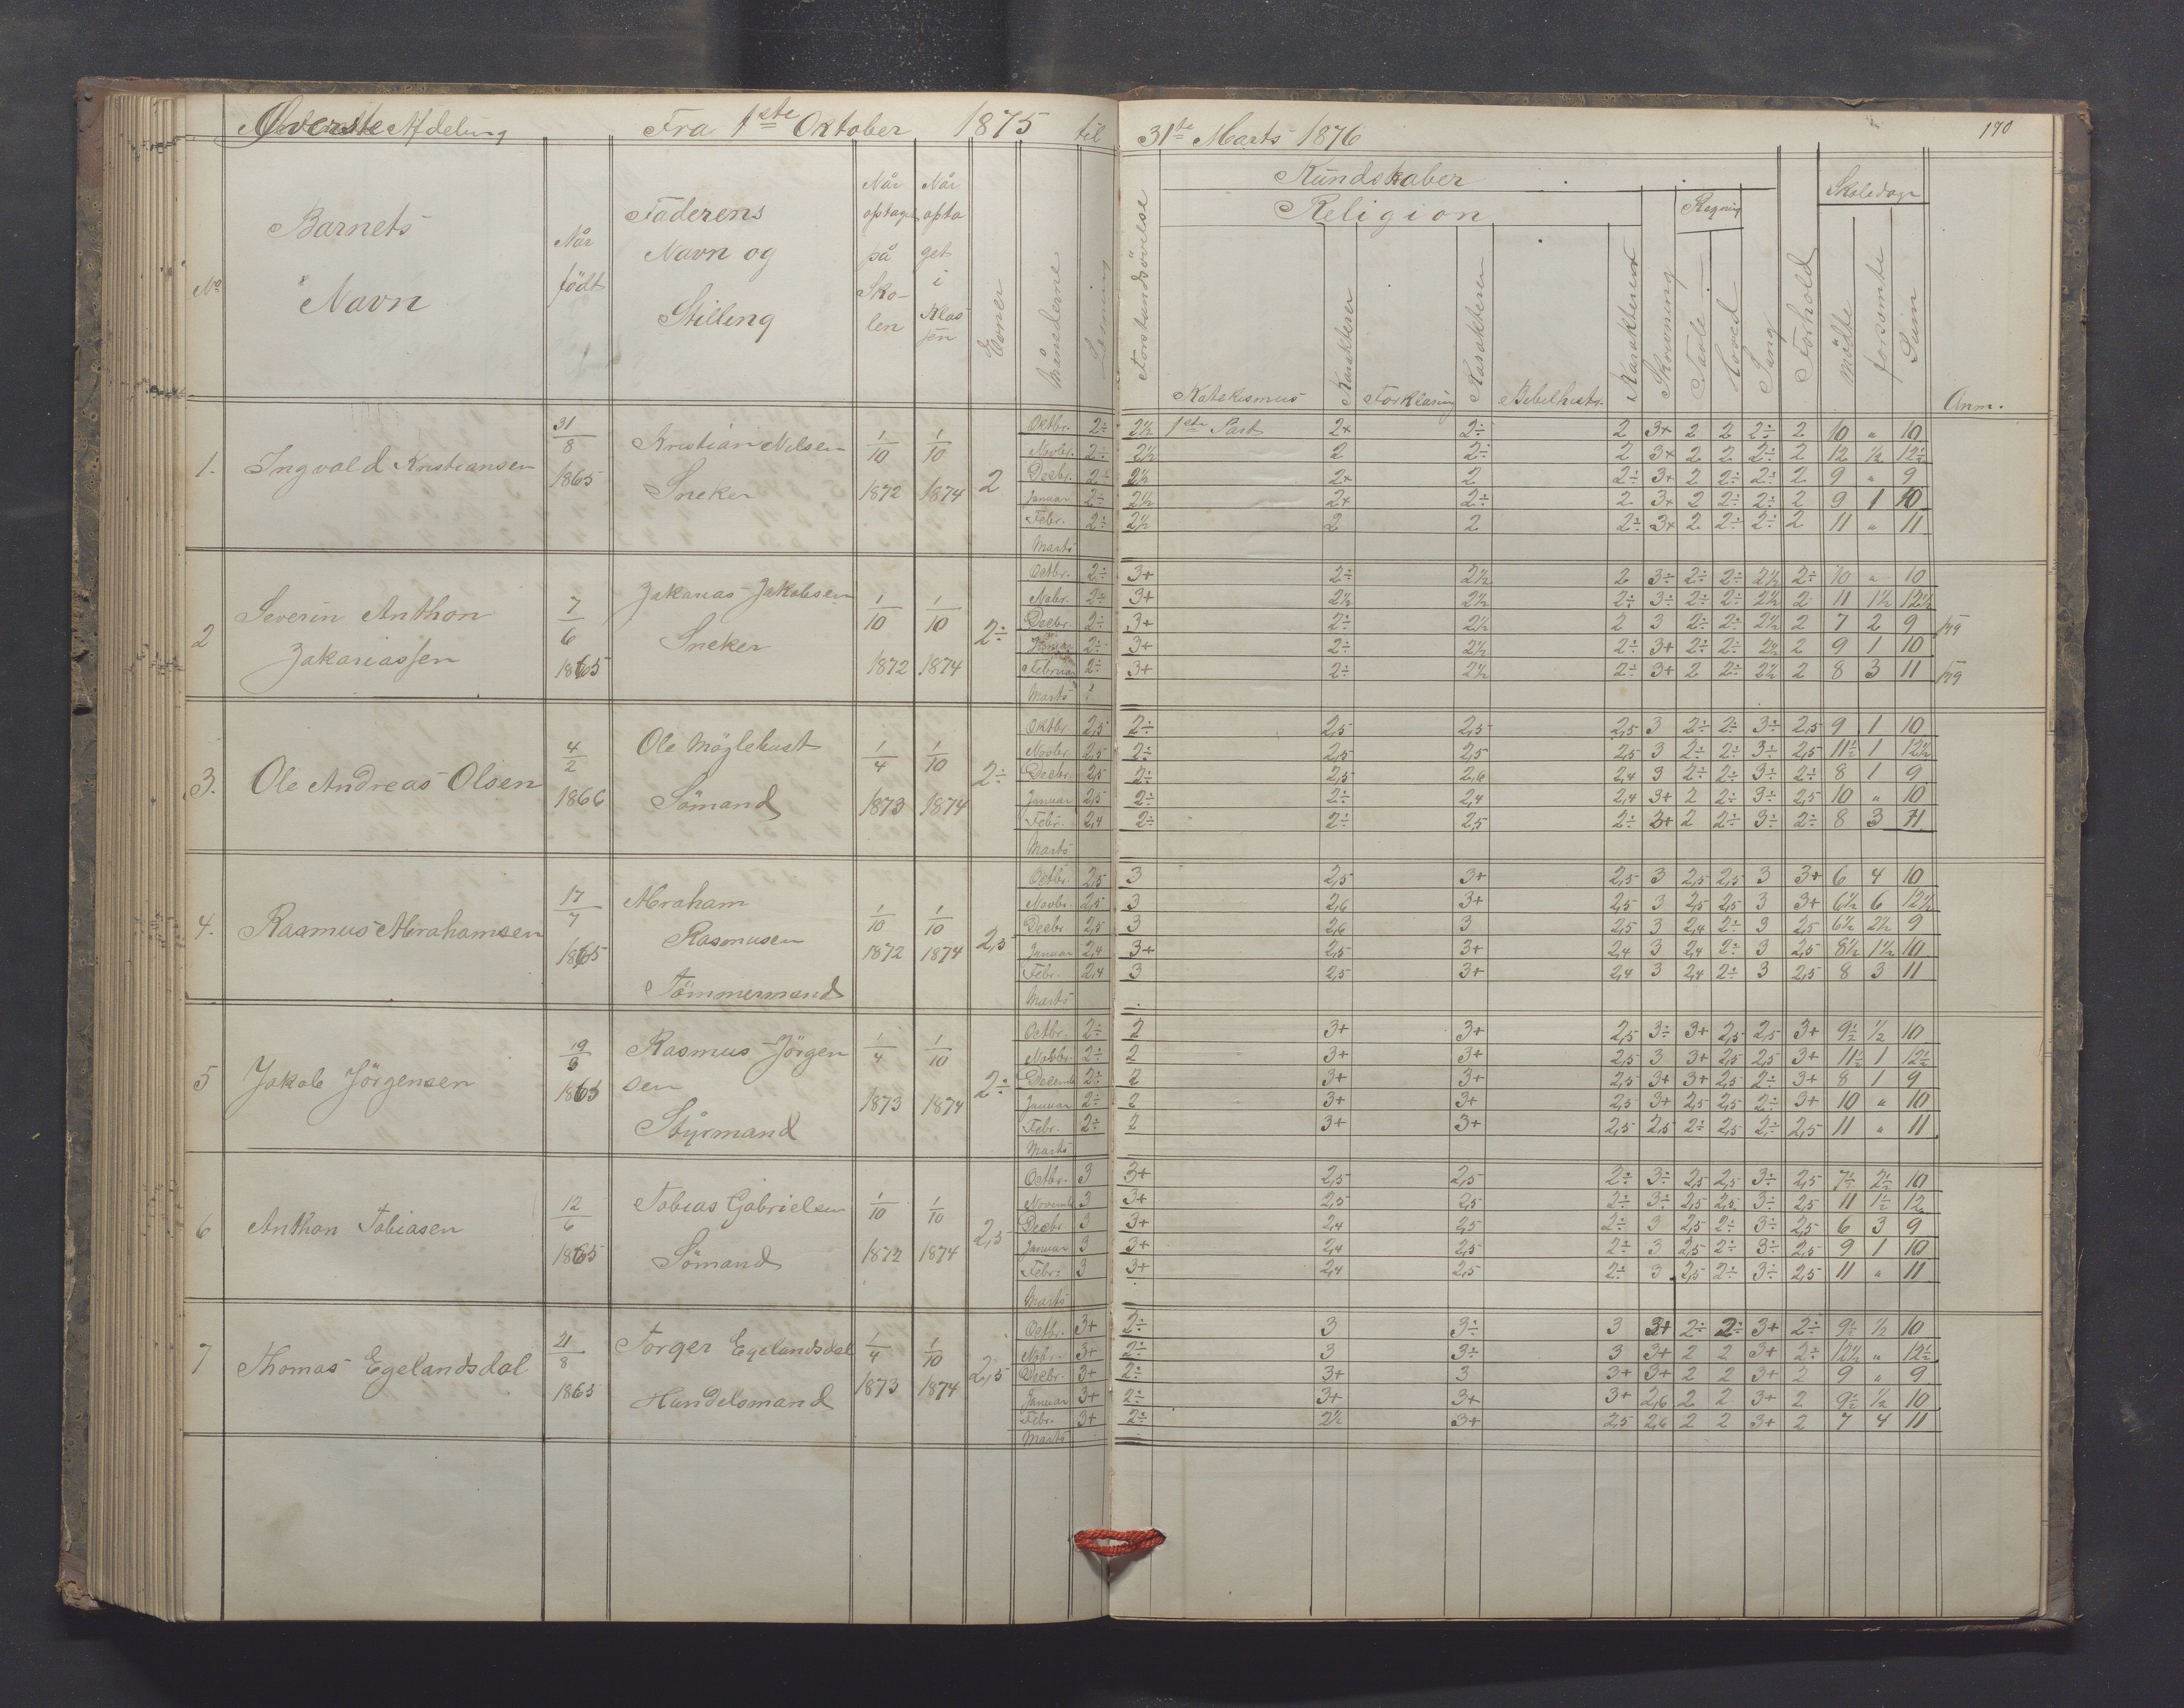 Øverste Afdeling Fra 1ste Oktober 1875 til 31te Marts 1876 190
No Barnets Navn Når födt Faderens Navn og Stilling Når optaget på Skolen Når optaget i Klassen Evner Månederne Læsning Forstandsövelse Kundskaber Religion Katekismus Karakteren Forklaring Karakteren Bibelhistr. Karakteren Skrivning Regning Tavle Hoved Sang Forhold Skoledage Mödte forsömte Sum Anm.
1. Ingvald Kristiansen 31/8 1865 Kristian Nilsen Sneker 1/10 1872 1/10 1874 2
Oktbr. 2÷ 2½ 1ste Part 2+ 2÷ 2 3+ 2 2 2÷ 2 10 " 10
Novbr. 2÷ 2½ 2 2÷ 2 3+ 2 2 2÷ 2 12 ½ 12½
Decbr. 2÷ 2½ 2+ 2 2÷ 3+ 2 2÷ 2÷ 2 9 " 9
Januar 2÷ 2½ 2+ 2÷ 2 3+ 2 2÷ 2÷ 2 9 1 10
Febr. 2÷ 2½ 2 2 2÷ 3+ 2 2÷ 2÷ 2 11 " 11
Marts
2 Severin Anthon Zakariassen 7/6 1865 Zakarias Jakobsen Sneker 1/10 1872 1/10 1874 2÷
Octbr. 2÷ 3+ 2÷ 2½ 2 3÷ 2÷ 2÷ 2½ 2÷ 10 " 10
Nobr. 2÷ 3+ 2½ 2½ 2÷ 3÷ 2÷ 2÷ 2½ 2 11 1½ 12½
Decbr. 2÷ 3+ 2÷ 2½ 2 3 2÷ 2÷ 2½ 2 7 2 9
Januar 2÷ 3+ 2÷ 2½ 2÷ 3+ 2÷ 2÷ 2½ 2 9 1 10
Februar 2÷ 3+ 2÷ 2½ 2÷ 3+ 2 2÷ 2½ 2 8 3 11
Marts
3. Ole Andreas Olsen 4/2 1866 Ole Möglehust Sömand 1/4 1873 1/10 1874 2÷
Oktbr. 2,5 2÷ 2,5 2,5 2,5 3 2÷ 2÷ 3÷ 2,5 9 1 10
Novbr. 2,5 2÷ 2,5 2,5 2,5 3 2÷ 2÷ 3÷ 2,5 11½ 1 12½
Decbr. 2,5 2÷ 2,5 2,6 2,4 3 2÷ 2÷ 3÷ 2÷ 8 1 9
Januar 2,5 2÷ 2÷ 2,4 2,4 3+ 2 2÷ 3÷ 2,5 10 " 10
Febr. 2,4 2÷ 2÷ 2,5 2÷ 3+ 2 2÷ 3÷ 2÷ 8 3 11
Marts
4. Rasmus Abrahamsen 17/7 1865 Abraham Rasmusen Tömmermand 1/10 1872 1/10 1874 2,5
Octbr. 2,5 3 2,5 3+ 2,5 3 2,5 2,5 3 3+ 6 4 10
Novbr. 2,5 3 2,6 3+ 2,5 3 2,5 2,5 3 3+ 6½ 6 12½
Decbr 2,5 3 2,6 3 2,5 3 2,4 2÷ 3 2,5 6½ 2½ 9
Januar 2,4 3+ 2,5 3+ 2,4 3 2,4 2÷ 3 2,5 8½ 1½ 10
Febr. 2,4 3 2,5 3+ 2,4 3 2,4 2÷ 3 2,5 8 3 11
Marts
5 Jakob Jörgensen 19/3 1865 Rasmus Jörgensen Styrmand 1/4 1873 1/10 1874 2÷
Octbr. 2÷ 2 3+ 3+ 2,5 3÷ 3+ 2,5 2,5 3+ 9½ ½ 10
Novbr. 2÷ 2 3+ 3+ 2,5 3 3+ 2,5 2,5 3+ 11½ 1 12½
Decemb 2÷ 2 3+ 3+ 2,5 3+ 3+ 2,5 2÷ 3+ 8 1 9
Januar 2÷ 2 3+ 3+ 2,5 3+ 2,5 2,5 2÷ 3+ 10 " 10
Febr. 2÷ 2 3+ 3+ 2,5 2,5 2÷ 2,5 2÷ 2,5 11 " 11
Marts
6 Anthon Tobiasen 12/6 1865 Tobias Gabrielsen Sömand 1/10 1872 1/10 1874 2,5
Octbr. 3 3+ 2,5 2,5 2÷ 3÷ 2,5 2,5 3÷ 2,5 7½ 2½ 10
Novemb 3 3+ 2,5 2,5 2÷ 3÷ 2,5 2,5 3÷ 2,5 11 1½ 12
Decbr 3 3+ 2,4 2,5 2÷ 3 2,5 2÷ 3÷ 2,5 6 3 9
Januar 3 3+ 2,4 2,5 2÷ 3 2,5 2÷ 3÷ 2,5 9 1 10
Febr. 3 3+ 2,4 2,5 2÷ 3 2,5 2÷ 3÷ 2,5 11 " 11
Marts
7 Thomas Egelandsdal 21/8 1865 Torger Egelandsdal Handelsmand 1/4 1873 1/10 1874 2,5
Octbr. 3+ 2÷ 3 3÷ 3 3+ 2÷ 2÷ 3+ 2÷ 9½ ½ 10
Nobr. 3+ 2÷ 3 3÷ 3 3+ 2 2 3+ 2÷ 12½ " 12½
Decbr. 3+ 2÷ 3+ 3 3+ 3+ 2 2 3+ 2 9 " 9
Januar 3+ 2÷ 3+ 3+ 3+ 2,6 2 2 3+ 2 9½ ½ 10
Febr. 3+ 2÷ 2½ 3+ 2,5 2,6 2 2 3+ 2 7 4 11
Marts